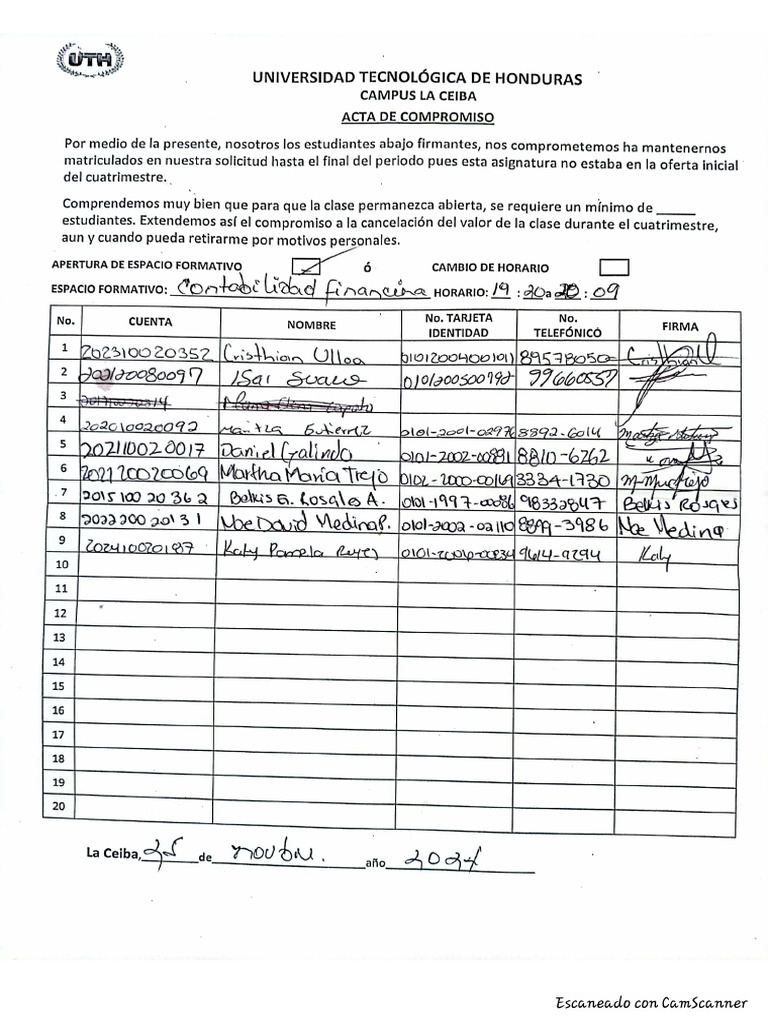 UTH
UNIVERSIDAD TECNOLÓGICA DE HONDURAS
CAMPUS LA CEIBA
ACTA DE COMPROMISO
Por medio de la presente, nosotros los estudiantes abajo firmantes, nos comprometemos ha mantenernos
matriculados en nuestra solicitud hasta el final del periodo pues esta asignatura no estaba en la oferta inicial
del cuatrimestre.
Comprendemos muy bien que para que la clase permanezca abierta, se requiere un mínimo de _____
estudiantes. Extendemos así el compromiso a la cancelación del valor de la clase durante el cuatrimestre,
aun y cuando pueda retirarme por motivos personales.
APERTURA DE ESPACIO FORMATIVO ó CAMBIO DE HORARIO
ESPACIO FORMATIVO: Contabilidad Financira HORARIO: 19 : 20 a 20 : 09
No. CUENTA NOMBRE No. TARJETA IDENTIDAD No. TELEFÓNICO FIRMA
1 202310020352 Cristhian Ulloa 0101200400101 89578050
2 202120080097 Isai 0101200500792 99660557
3
4 202010020092 Gutierrez 0101-2001-02976 8892-6014
5 202110020017 Daniel Galindo 0101-2002-00891 8810-6262
6 202120020069 Martha María Trejo 0102-2000-00169 3334-1730
7 201510020362 Belkis G. Rosales A. 0101-1997-00086 98332847 Belkis Rosales
8 202220020131 Noe David Medina P. 0101-2002-02110 8899-3986 Noe Medina
9 202410020187 Katy Pamela Reyes 9614-9294 Katy
10
11
12
13
14
15
16
17
18
19
20
La Ceiba, 25 de año 2024
Escaneado con CamScanner